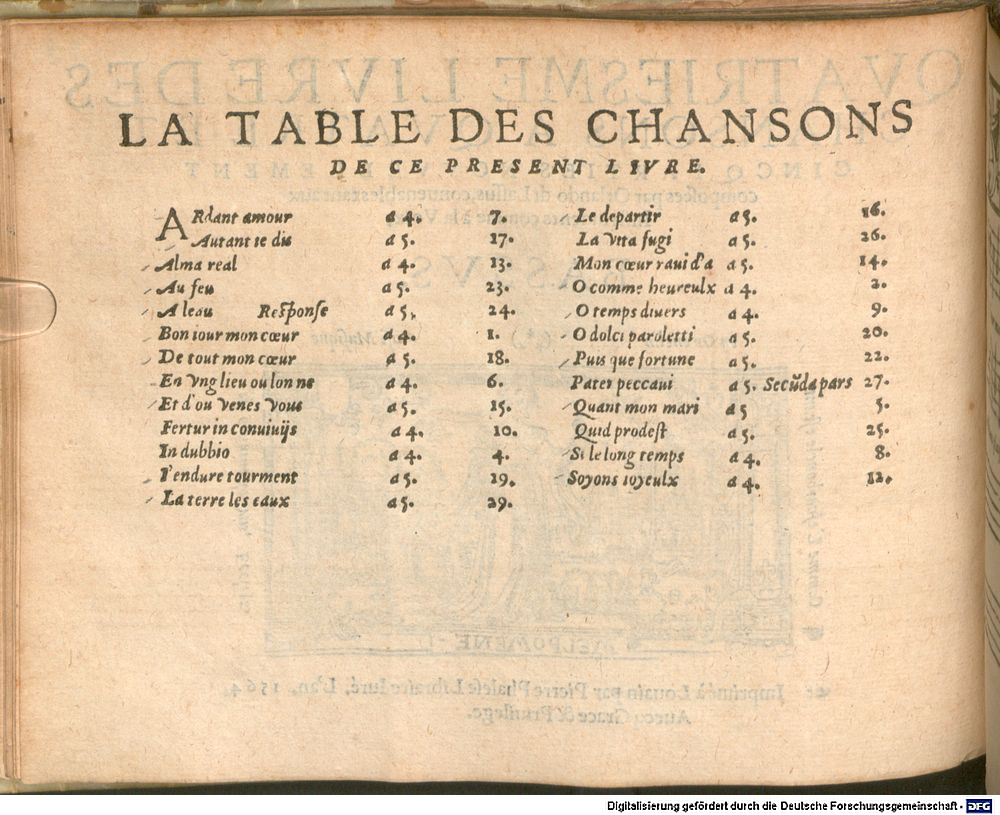 LA TABLE DES CHANSONS
DE CE PRESENT LIVRE.
ARdant amour a 4. 7.
Autant te dis a 5. 17.
Alma real a 4. 13.
Au feu a 5. 23.
A leau Response a 5. 24.
Bon iour mon cœur a 4. 1.
De tout mon cœur a 5. 18.
En vng lieu ou lon ne a 4. 6.
Et d'ou venes vous a 5. 15.
Fertur in conuiuijs a 4. 10.
In dubbio a 4. 4.
I'endure tourment a 5. 19.
La terre les eaux a 5. 29.
Le departir a 5. 16.
La vita fugi a 5. 26.
Mon cœur raui d'a a 5. 14.
O comme heureulx a 4. 2.
O temps diuers a 4. 9.
O dolci paroletti a 5. 20.
Puis que fortune a 5. 22.
Pater peccaui a 5. Secūda pars 27.
Quant mon mari a 5 5.
Quid prodest a 5. 25.
Si le long temps a 4. 8.
Soyons ioyeulx a 4. 12.
Digitalisierung gefördert durch die Deutsche Forschungsgemeinschaft - DFG